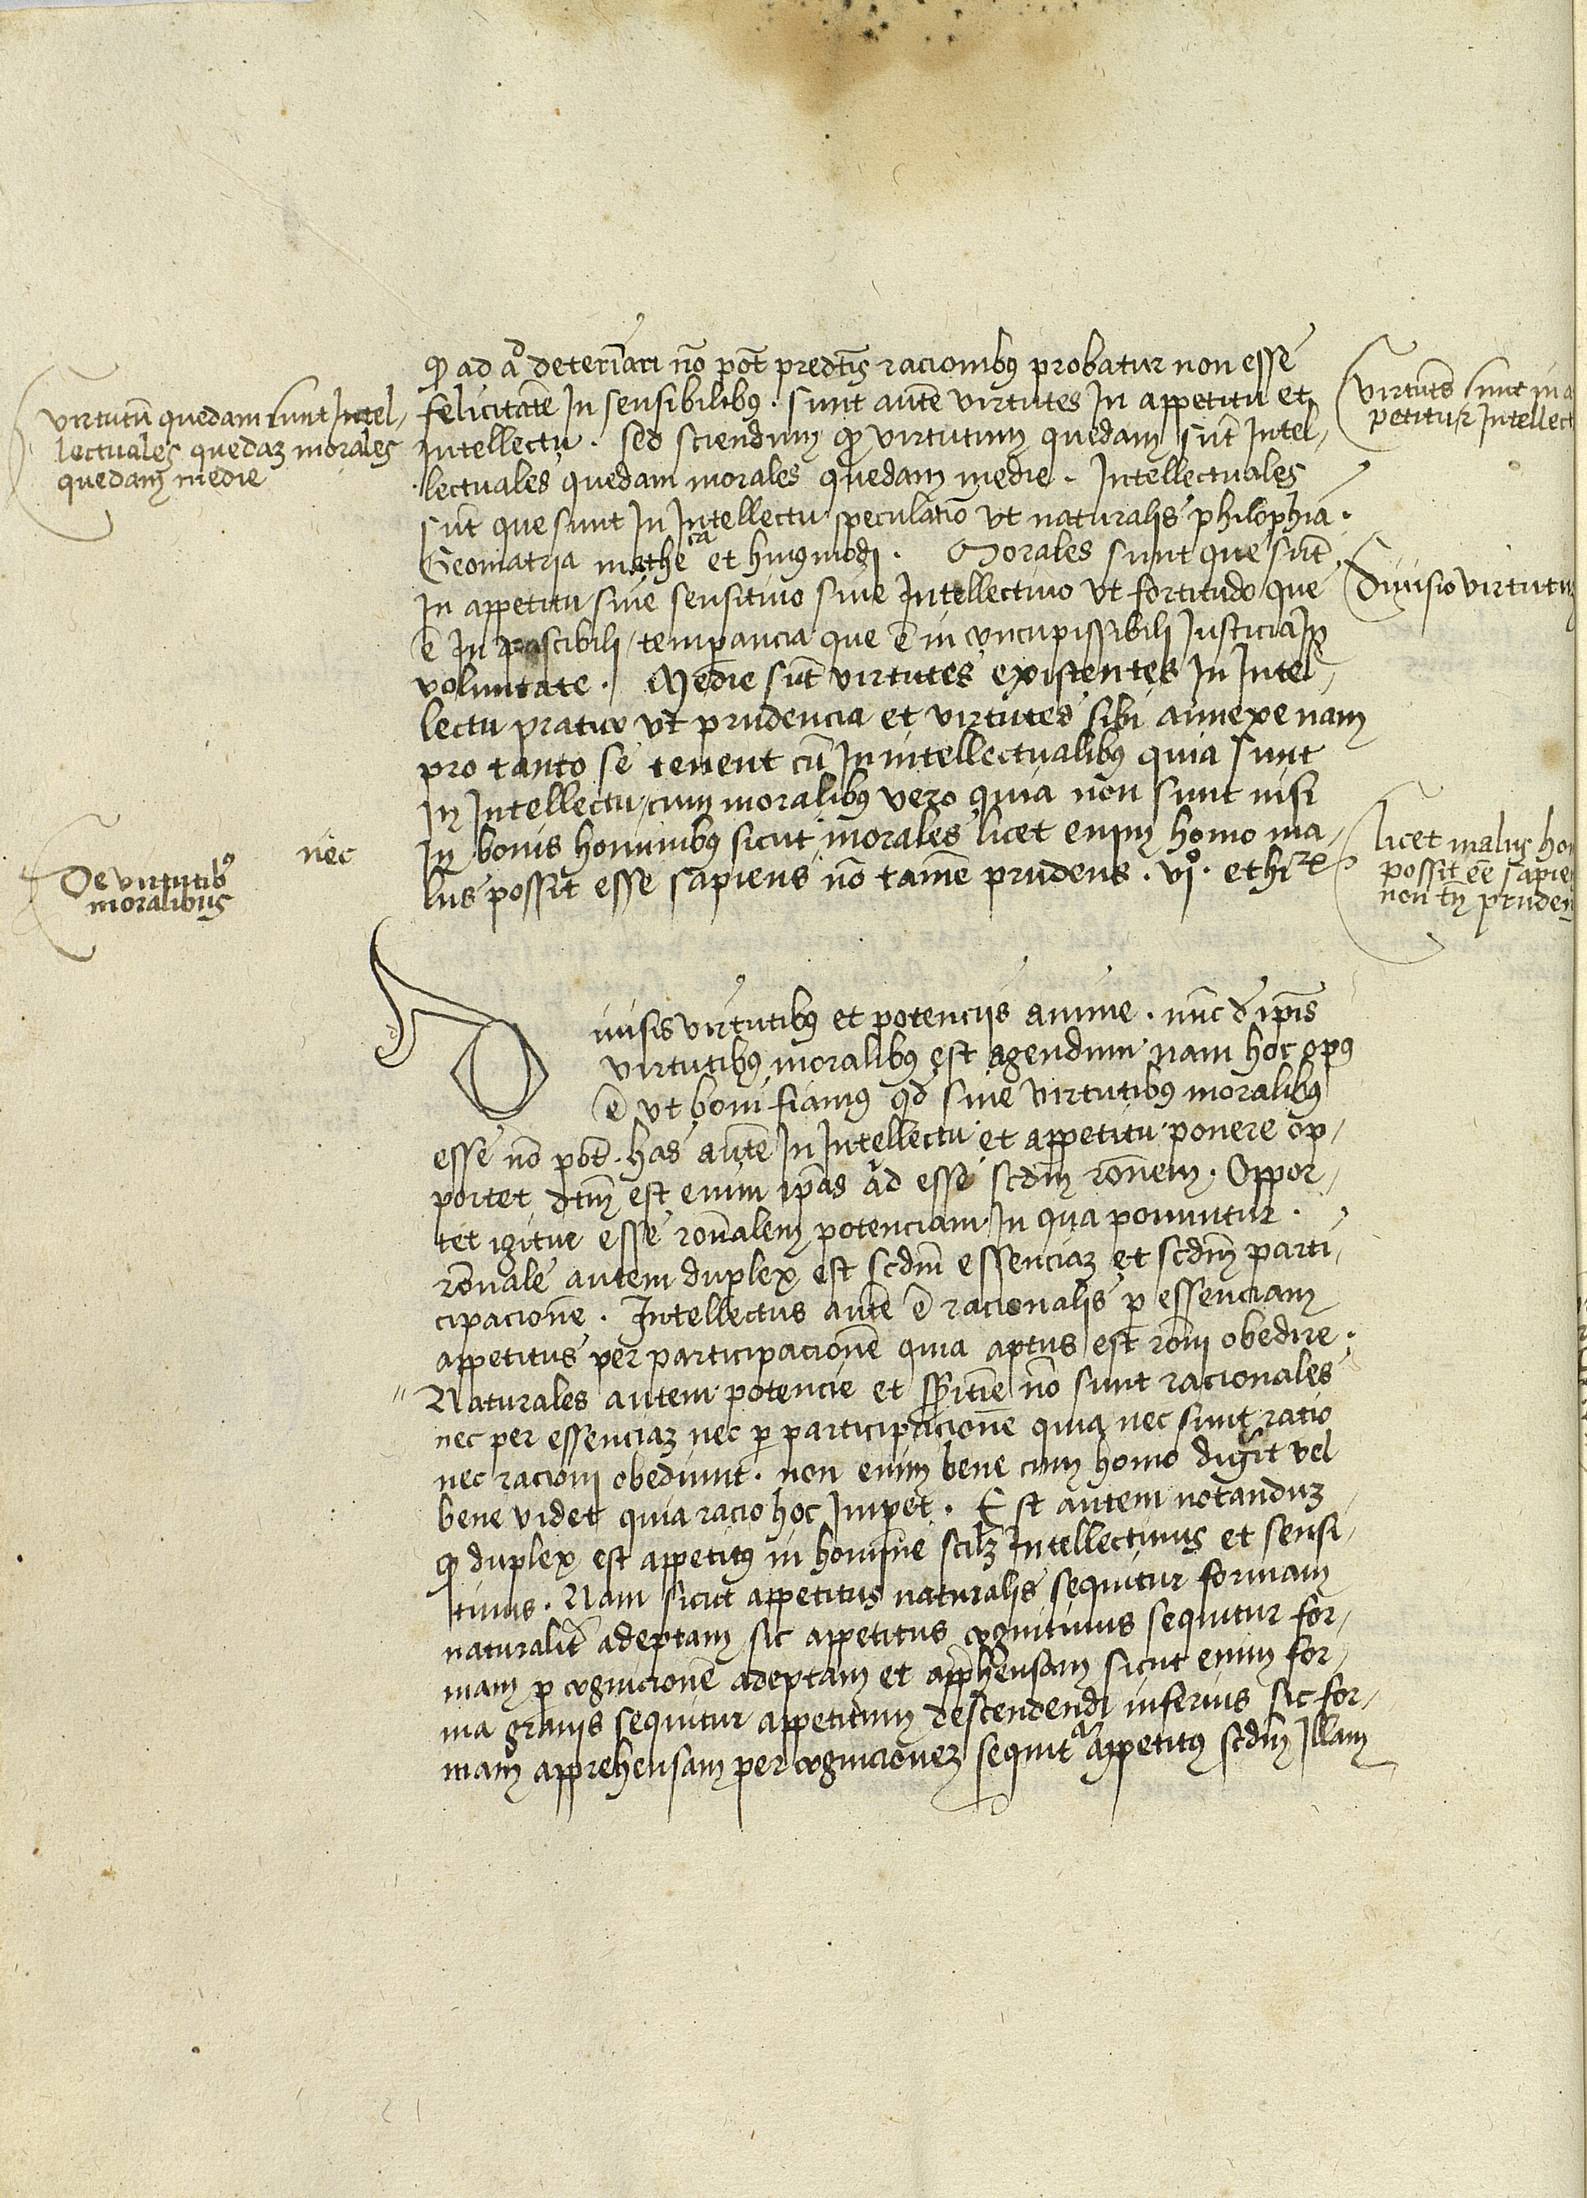 virtutū quedam sunt Intel-
lectuales quedaz morales
quedam medie
ꝙ ad determīari nō pot̄ predc̄is racionibꝰ probatur non esse
felicitatē In sensibilibꝰ. sunt autē virtutes In appetitu et
intellectu. sed sciendum ꝙ virtutum quedam sūt Intel-
lectuales quedam morales quedam medie. Intellectuales
sūt que sunt In Intellectu speculatīo vt naturalis philophia.
Geomatria mathe^ca et huiꝰmodi. Morales sunt que sūt
In appetitu siue sensitiuo siue Intellectiuo vt fortitudo que
ē In Irascibili temp̱ancia que ē in concupissibili Iusticia In
voluntate. Medie sūt virtutes existentes In Intel-
lectu pratico vt prudencia et virtutes sibi annexe nam
pro tanto se tenent cū In intellectualibꝰ quia sunt
In Intellectu cum moralibꝰ vero quia non sunt nisi
In bonis hominibꝰ sicut morales licet enim homo ma-
lus possit esse sapiens nō tamē prudens. vjº. ethi
virtutes sunt in a
petitur Intellect
Diuisio virtutu
licet malus ho
possit eē sapie
non tn̄ pruden
nec
De virtutibꝰ
moralibus
D iuisis virtutibꝰ et potenciis anime. nūc d̄ ip̄is
virtutibꝰ moralibꝰ est agendum nam hoc opꝰ
ē vt boni fiamꝰ qd̄ sine virtutibꝰ moralibꝰ
esse nō pot̄. has autē In Intellectu et appetitu ponere op-
portet dc̄m est enim ip̄as ad esse scd̄m rōnem. Oppor-
tet igitur esse rōnalem potenciam In qua ponuntur.
rōnale autem duplex est scd̄m essenciaz et scd̄m parti-
cipacionē. Intellectus autē ē racionalis ꝑ essenciam
appetitus per participacionē quia aptus est rōni obedire.
Naturales autem potencie et sēsitiē nō sunt racionales
nec per essenciaz nec ꝑ participacionē quia nec sunt ratio
nec racioni obediunt. non enim bene cum homo digerit vel
bene videt quia racio hoc Imꝑet. Est autem notanduz
ꝙ duplex est appetitꝰ in homine scilz Intellectiuus et sensi-
tiuus. Nam sicut appetitus naturalis sequitur formam
naturalit̄ adeptam sic appetitus cognitiuus sequitur for-
mam ꝑ cognicionē adeptam et app̄hensam sicut enim for-
ma grauis sequitur appetitum descendendi inferius sic for-
mam apprehensam per cognicionez sequit^r appetitꝰ scd̄m Illam